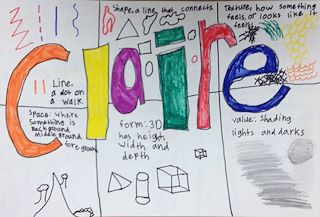 Shape, a line, that connects
Texture, how something
feels, or looks like it
feels
Claire
Line,
a dot on
a walk.
Space: where
something is
Background
Middle ground
fore ground
form: 3D
has height,
width and
depth
value: Shading
lights and darks